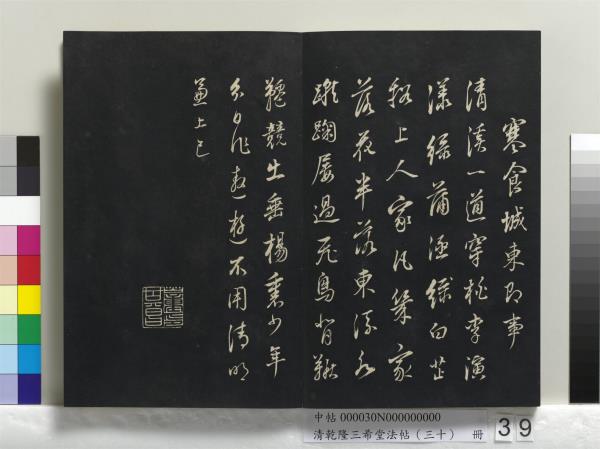 寒食城東即事
清溪一道穿桃李演
漾綠蒲涵綠白芷
谿上人家凡幾家
落花半落東流水
蹴踘屢過飛鳥背鞦
韆競出垂楊裏少年
分日作遨遊不用清明
兼上巳
中帖 000030N000000000
清乾隆三希堂法帖(三十) 冊
39